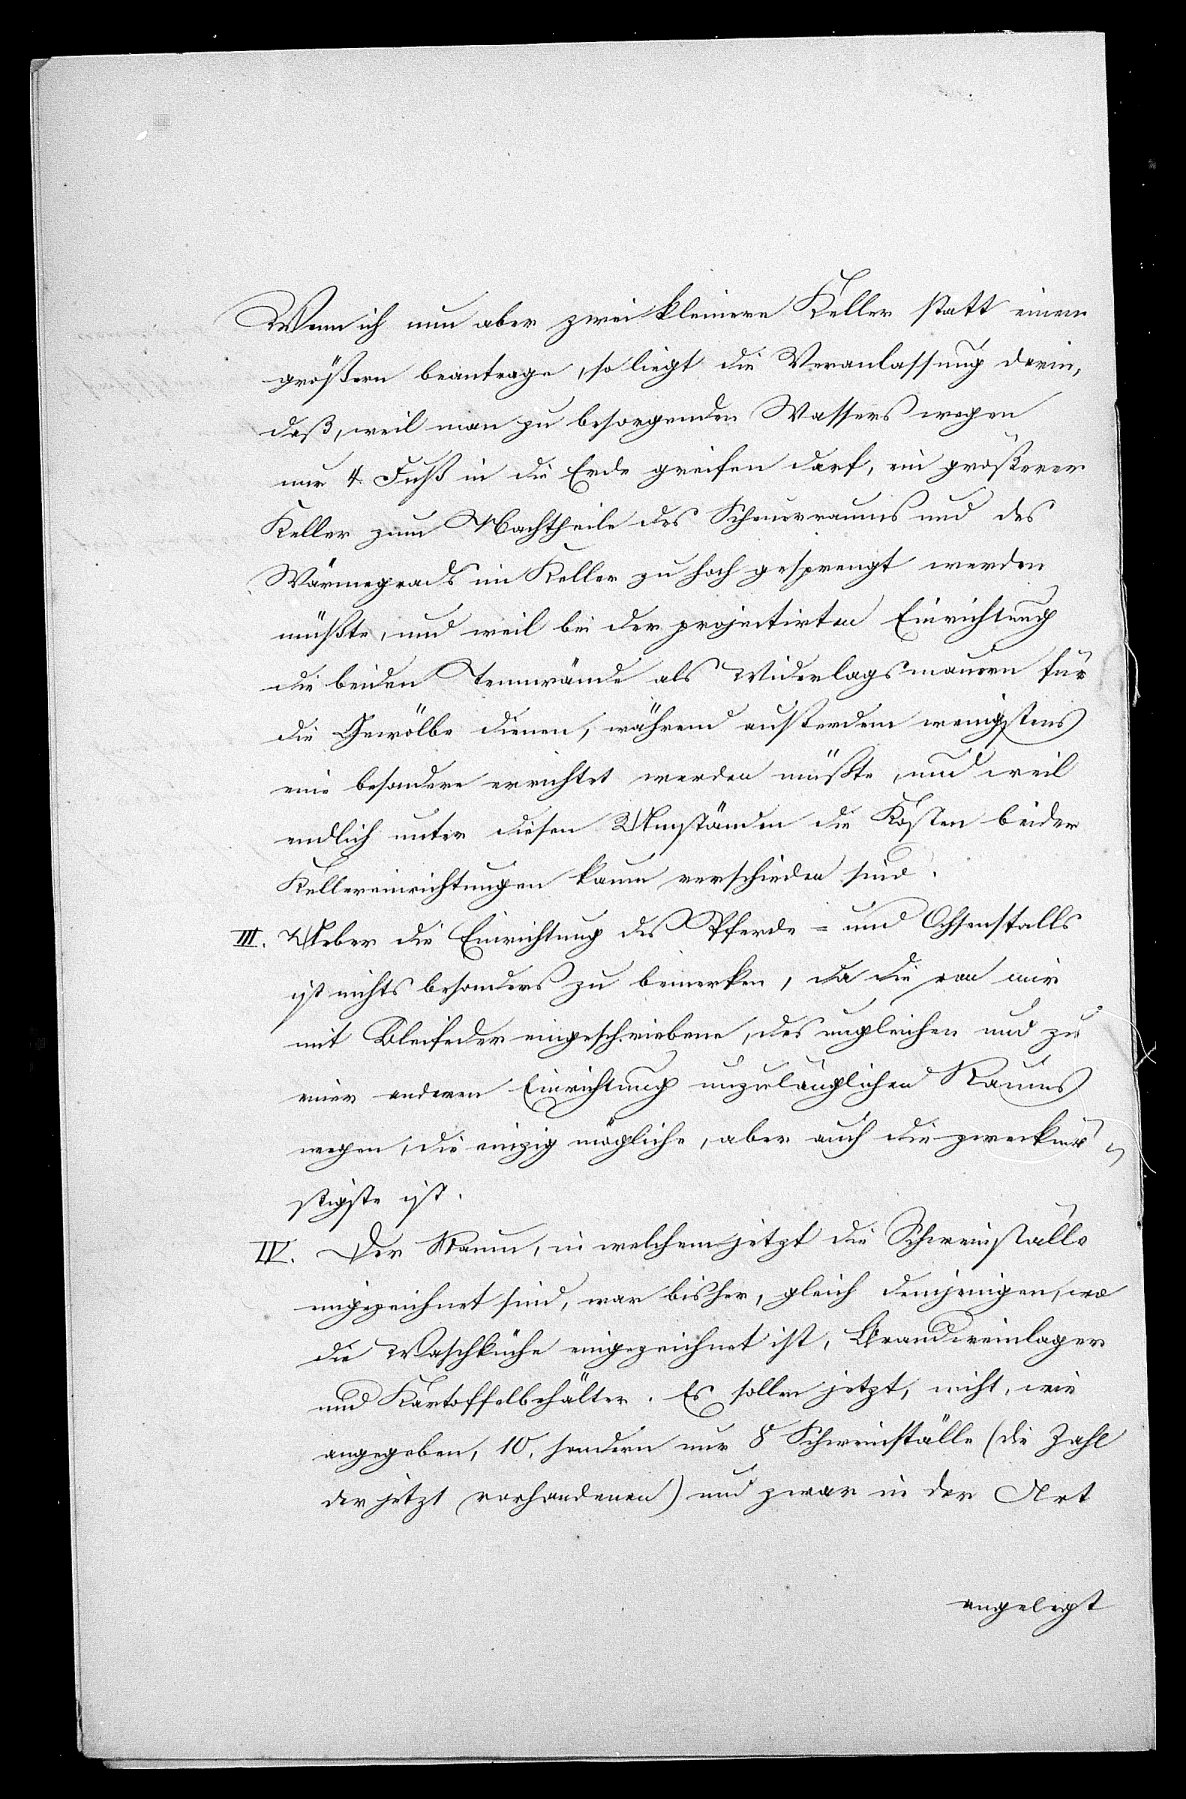 Wenn ich nun aber zwei kleinere Keller statt einen
größern beantrage, so liegt die Veranlassung darin,
daß, weil man zu besorgenden Wassers wegen
nur 4 Fuß in die Erde greifen darf, ein größerer
Keller zum Nachtheile des Scheuerraums und des
Wärmegrads im Keller zu hoch gesprengt werden
müßte, und weil bei der projectirten Einrichtung
die beiden Tennwände als Widerlagsmauern für
die Gewölbe dienen, während außerdem wenigstens
eine besondere errichtet werden müßte, und weil
endlich unter diesen Umständen die Kosten beider
Kellereinrichtungen kaum verschieden sind.
III. Ueber die Einrichtung des Pferde- und Ochsenstalls
ist nichts besonders zu bemerken, da die von mir
mit Bleifeder eingeschriebene, des ungleichen und zu
einer anderen Einrichtung unzulänglichen Raums
wegen, die einzig mögliche, aber auch die zweckmä-
ßigste ist.
IV. Der Raum, in welchem jetzt die Schweinställe
eingezeichnet sind, war bisher, gleich demjenigen, wo
die Waschküche eingezeichnet ist, Brandweinlager
und Kartoffelbehälter. Es sollen jetzt, nicht, wie
angegeben, 10, sondern nur 8 Schweinställe (die Zahl
der jetzt vorhandenen) und zwar in der Art
angelegt